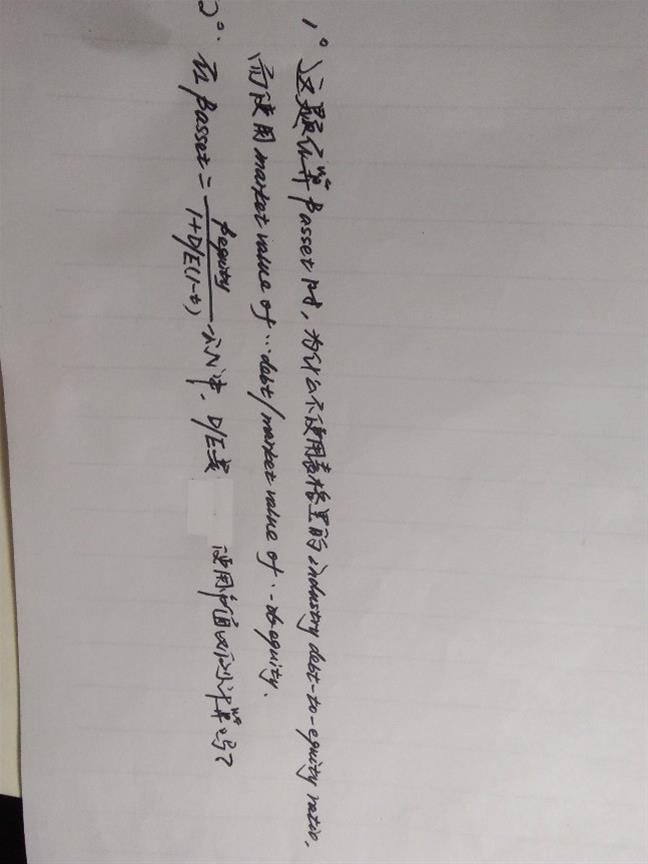 1° 这题估算βasset时，为什么不使用表格里的industry debt-to-equity ratio,
而使用market value of … debt/market value of … equity.
2°. 在βasset = βequity / 1+D/E(1-t) 公式中, D/E要
使用市值的计算吗?